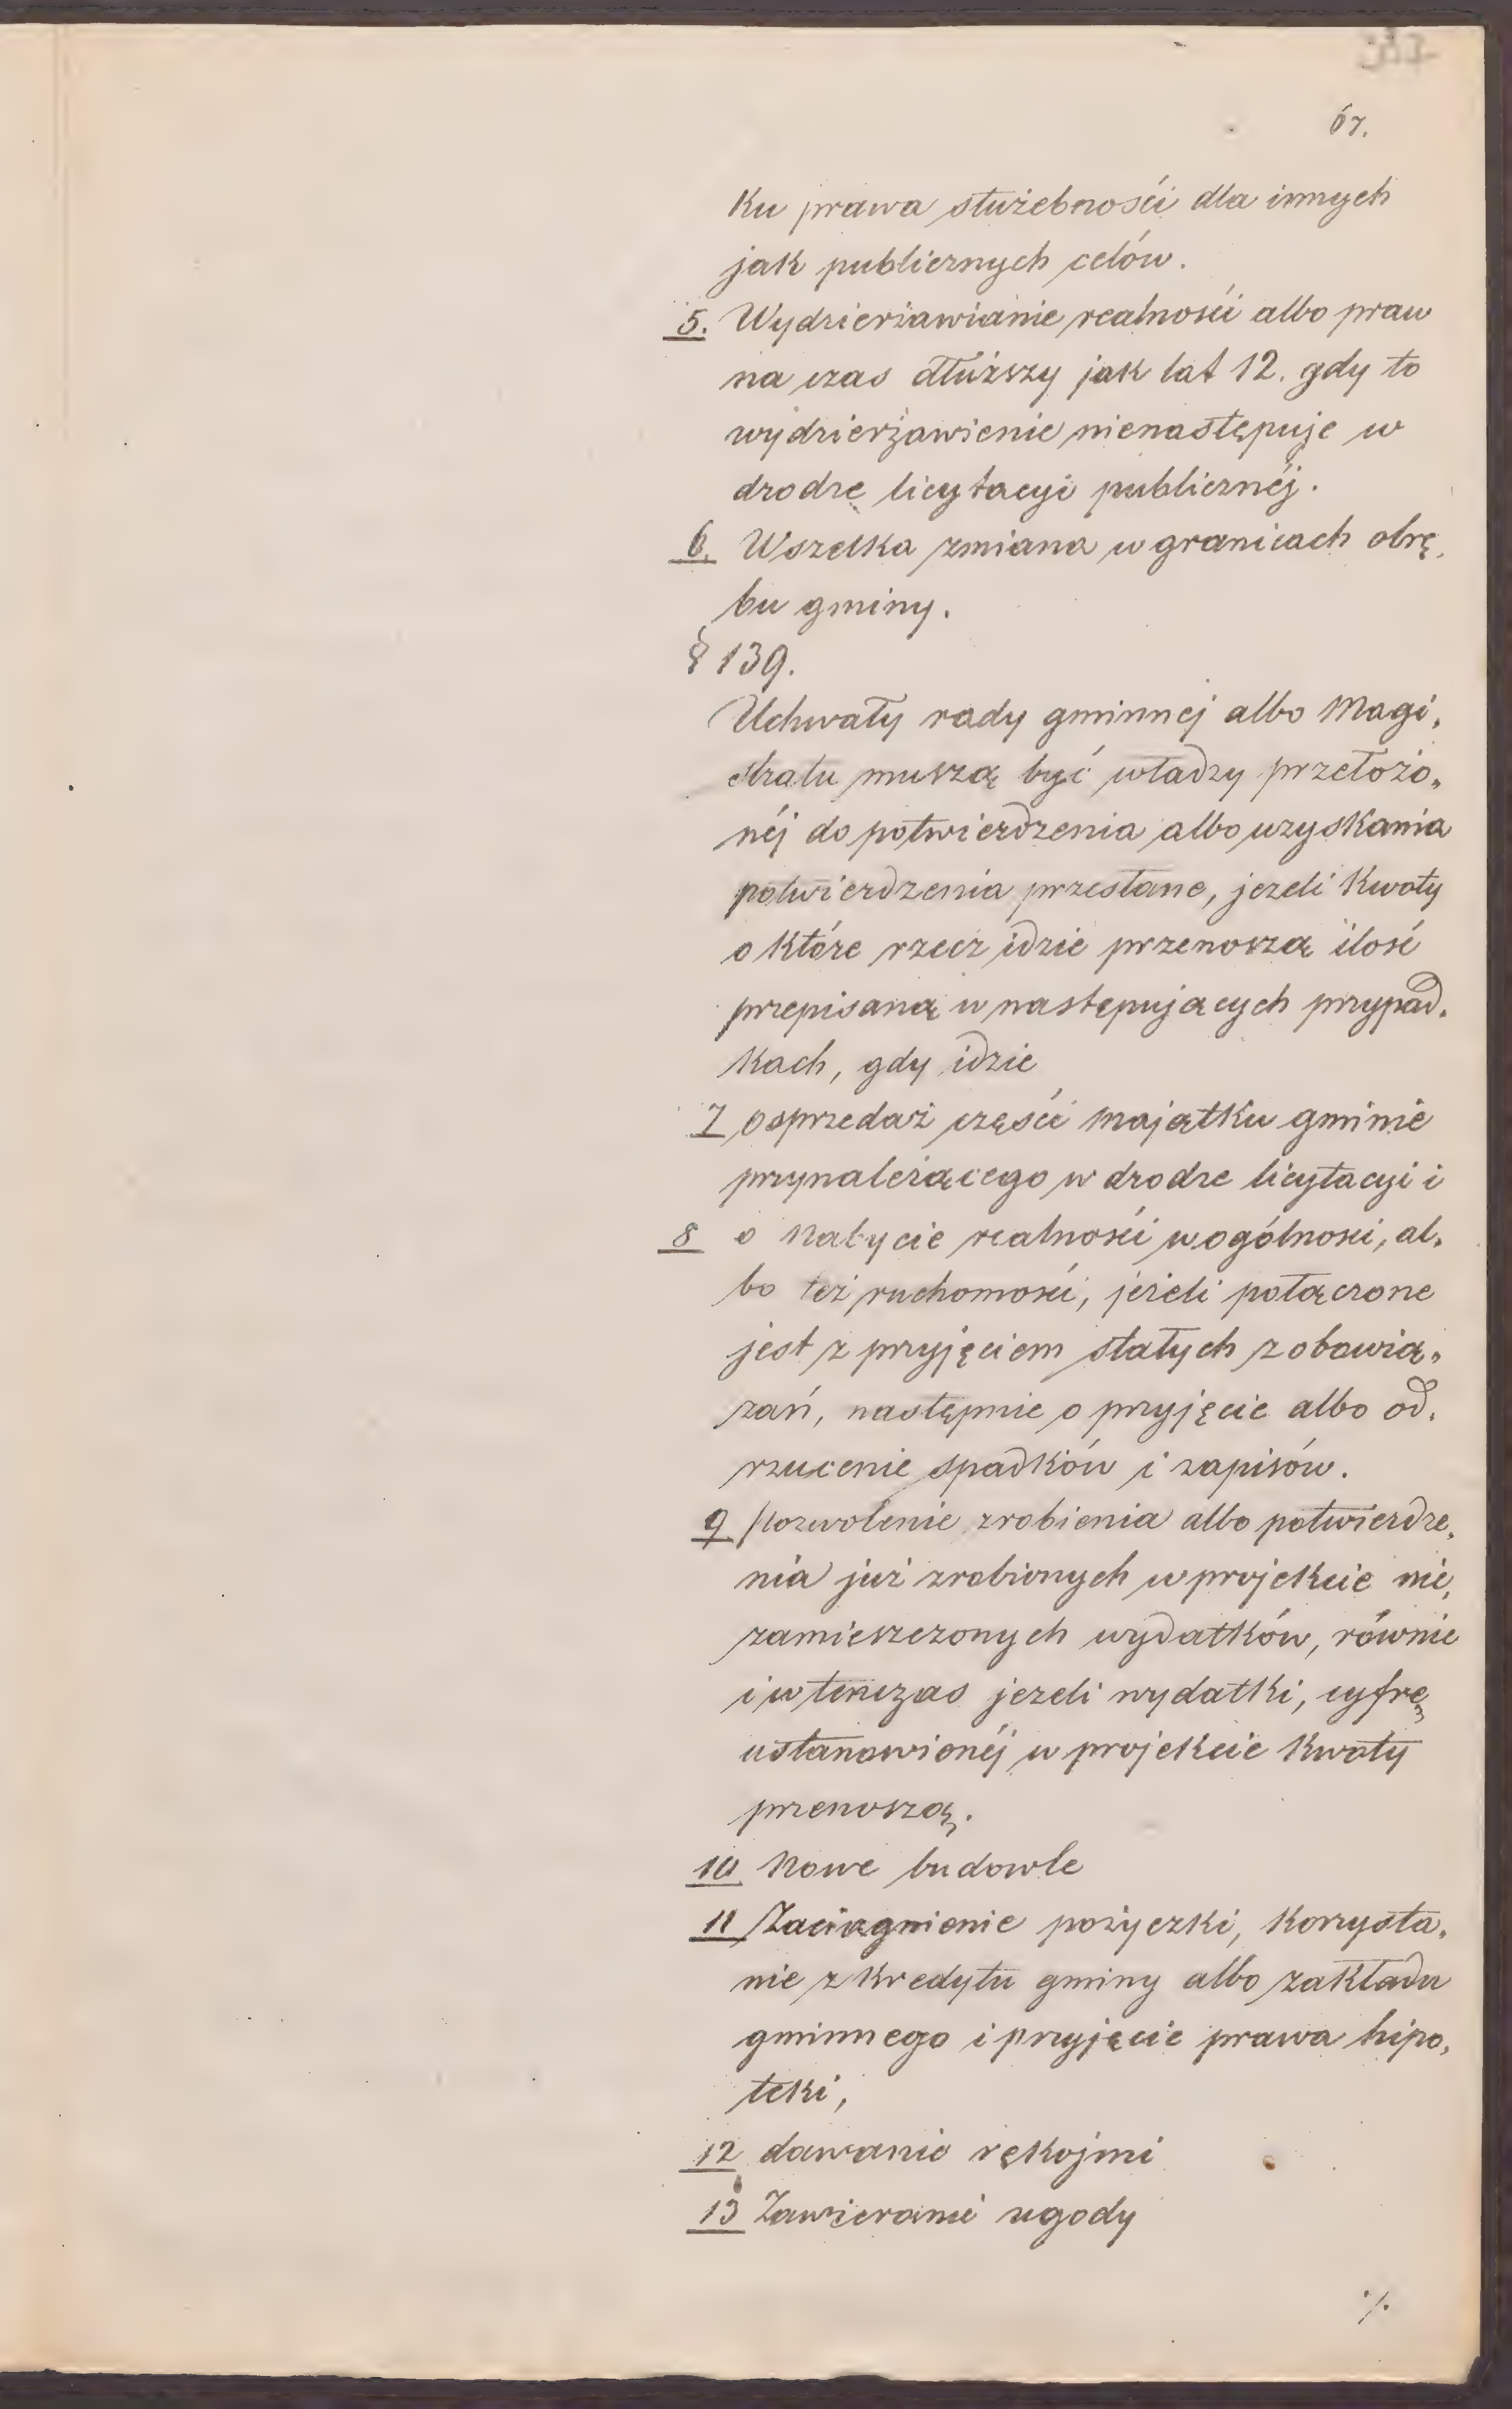 67.
ku prawa służebności dla innych
jak publicznych celów.
5. Wydzierżawianie realności albo praw
na czas dłuższy jak lat 12. gdy to
wydzierżawienie nienastępuje w
drodze licytacyi publicznéj.
6. Wszelka zmiana w granicach obrę„
bu gminy.
§ 139.
Uchwały rady gminnej albo Magi„
stratu muszą być władzy przełożo„
néj do potwierdzenia albo uzyskania
potwierdzenia przesłane, jezeli kwoty
o które rzecz idzie przenoszą ilość
przepisaną w następujacych przypad„
kach, gdy idzie
7 o sprzedaż części majątku gminie
przynależącego w drodze licytacyi i
8 o nabycie realności w ogólności, al„
bo też ruchomości, jeżeli połączone
jest z przyjęciem stałych zobowią„
zań, następnie o przyjęcie albo od„
rzucenie spadków i zapisów.
9 Pozwolenie zrobienia albo potwierdze„
nia już zrobionych w projekcie nie„
zamieszczonych wydatków, równie
i wtenczas jezeli wydatki, cyfrę
ustanowionéj w projekcie kwoty
przenoszą.
10 Nowe budowle
11 Zaciągnienie pożyczki, korzysta„
nie z kredytu gminy albo zakładu
gminnego i przyjęcie prawa hipo„
teki,
12 dawanie rękojmi
13 Zawieranie ugody
./.